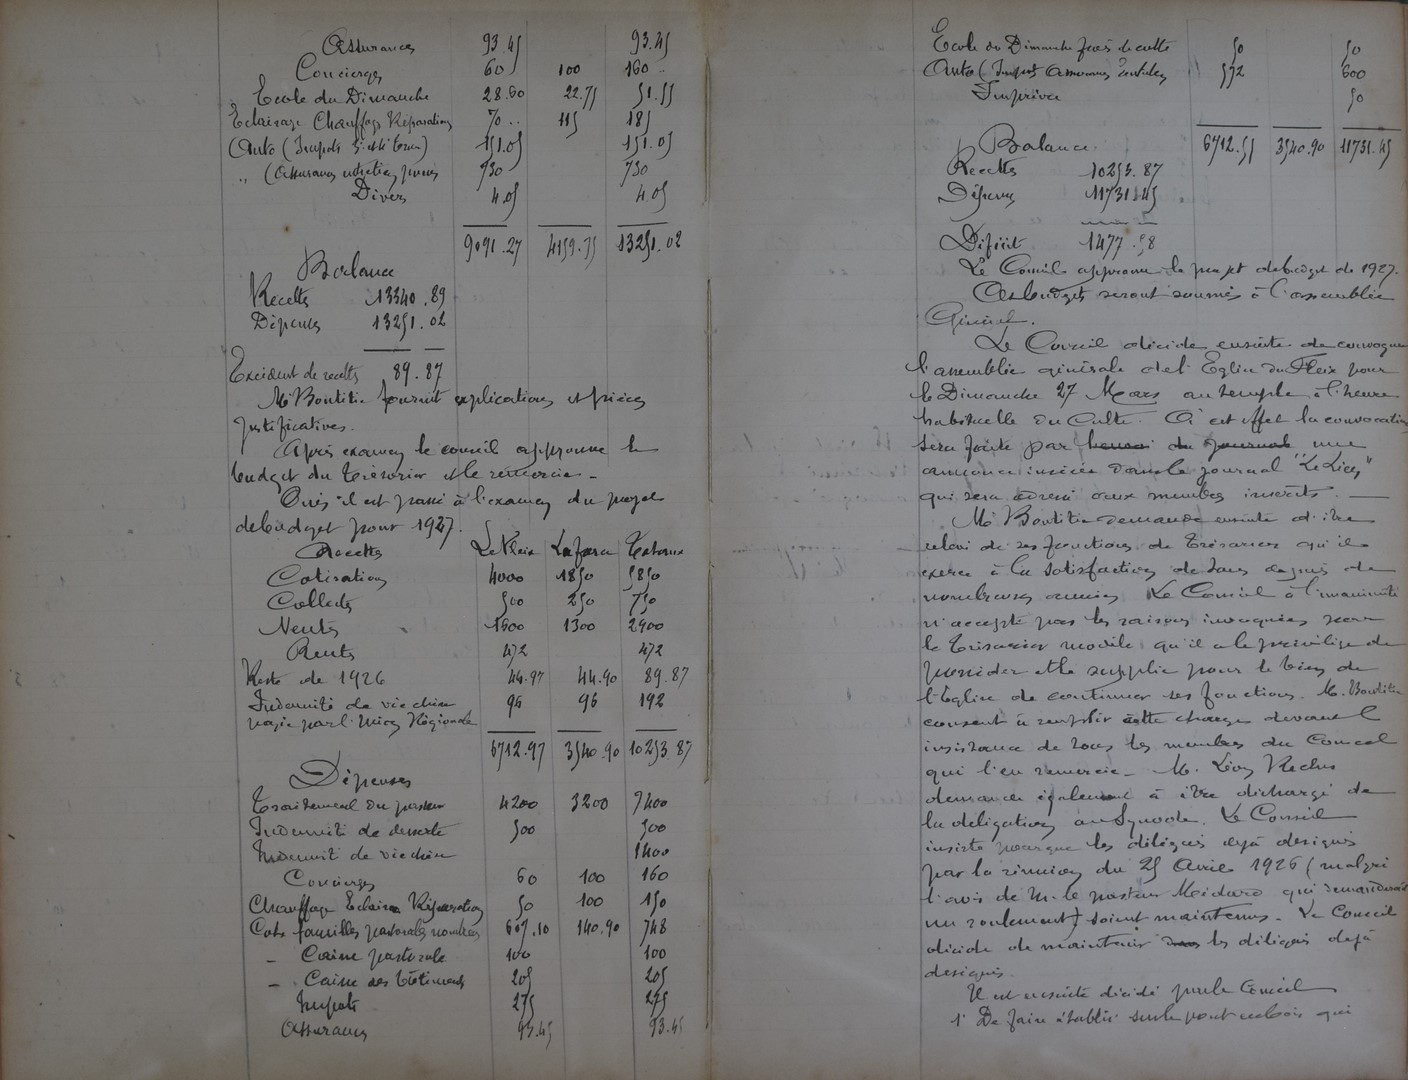 Assurances 93.45 93.45
Concierges 60 100 160 ..
Ecole du Dimanche 28.80 22.75 51.55
Eclairage Chauffage Réparations 70 .. 115 185
Auto (Impôts 151.05 151.05
" (Assurances 730 730
Divers 4.05 4.05
9091.27 4159.75 13251.02
Balance
Recettes 13340.89
Dépenses 13251.02
Excédent de recettes 89.87
Mr Boutitie fournit explications et pièces
justificatives.
Après examen le conseil approuve le
budget du Trésorier et le remercie -
Puis il est passé à l'examen du projet
de budget pour 1927.
Recettes Le Fleix Laforce Totaux
Cotisations 4000 1850 5850
Collectes 500 250 750
Ventes 1600 1300 2900
Rentes 472 472
Reste de 1926 44.97 44.90 89.87
Indemnité de vie chère
payée par l' Région 96 96 192
6712.97 3540.90 10253.87
Dépenses
Traitement du pasteur 4200 3200 7400
Indemnité de desserte 500 500
Indemnité de vie chère 1400
Concierges 60 100 160
Chauffage Eclairage Réparations 50 100 150
Cots familles pastorales nombreuses 607.10 140.90 748
- Caisse pastorale 100 100
- Caisse des 205 205
Impôts 275 275
Assurances 93.45 93.45
Ecole du Dimanche frais de culte 50 50
Auto (Impôts Assurances 572 600
Imprévu 50
6712.55 3540.90 11731.45
Balance
Recettes 10253.87
Dépenses 11731.45
Déficit 1477.58
Le Conseil approuve le projet de budget de 1927.
Ces budgets seront soumis à l'assemblée
Générale.
Le Conseil décide ensuite de convoquer
l'assemblée générale de l'Eglise du Fleix pour
le Dimanche 27 Mars au temple à l'heure
habituelle du Culte. A cet effet la convocation
sera faite par du journal une
annonce insérée dans le journal "Le Lien"
qui sera adressé aux membres inscrits. —
Mr Boutitie demande ensuite d'être
relevé de ses fonctions de Trésorier qu'il
exerce à la satisfaction de tous depuis de
nombreuses années. Le Conseil à l'unanimité
n'accepte pas les raisons invoquées par
le Trésorier modèle qu'il a le privilège de
posséder et le supplie pour le bien de
l'Eglise de continuer ses fonctions. M. Boutitie
consent à remplir cette charge devant l
insistance de tous les membres du Conseil
qui l'en remercie - M. Léon Reclus
demande également à être déchargé de
la délégation au Synode. Le Conseil
insiste pour que les délégués déjà désignés
par la réunion du 25 Avril 1926 (malgré
l'avis de M. le pasteur qui demandait
un roulement) soient maintenus. Le Conseil
décide de maintenir les délégués déjà
désignés.
Il est ensuite décidé par le Conseil
1° De faire établir sur le pont en bois qui